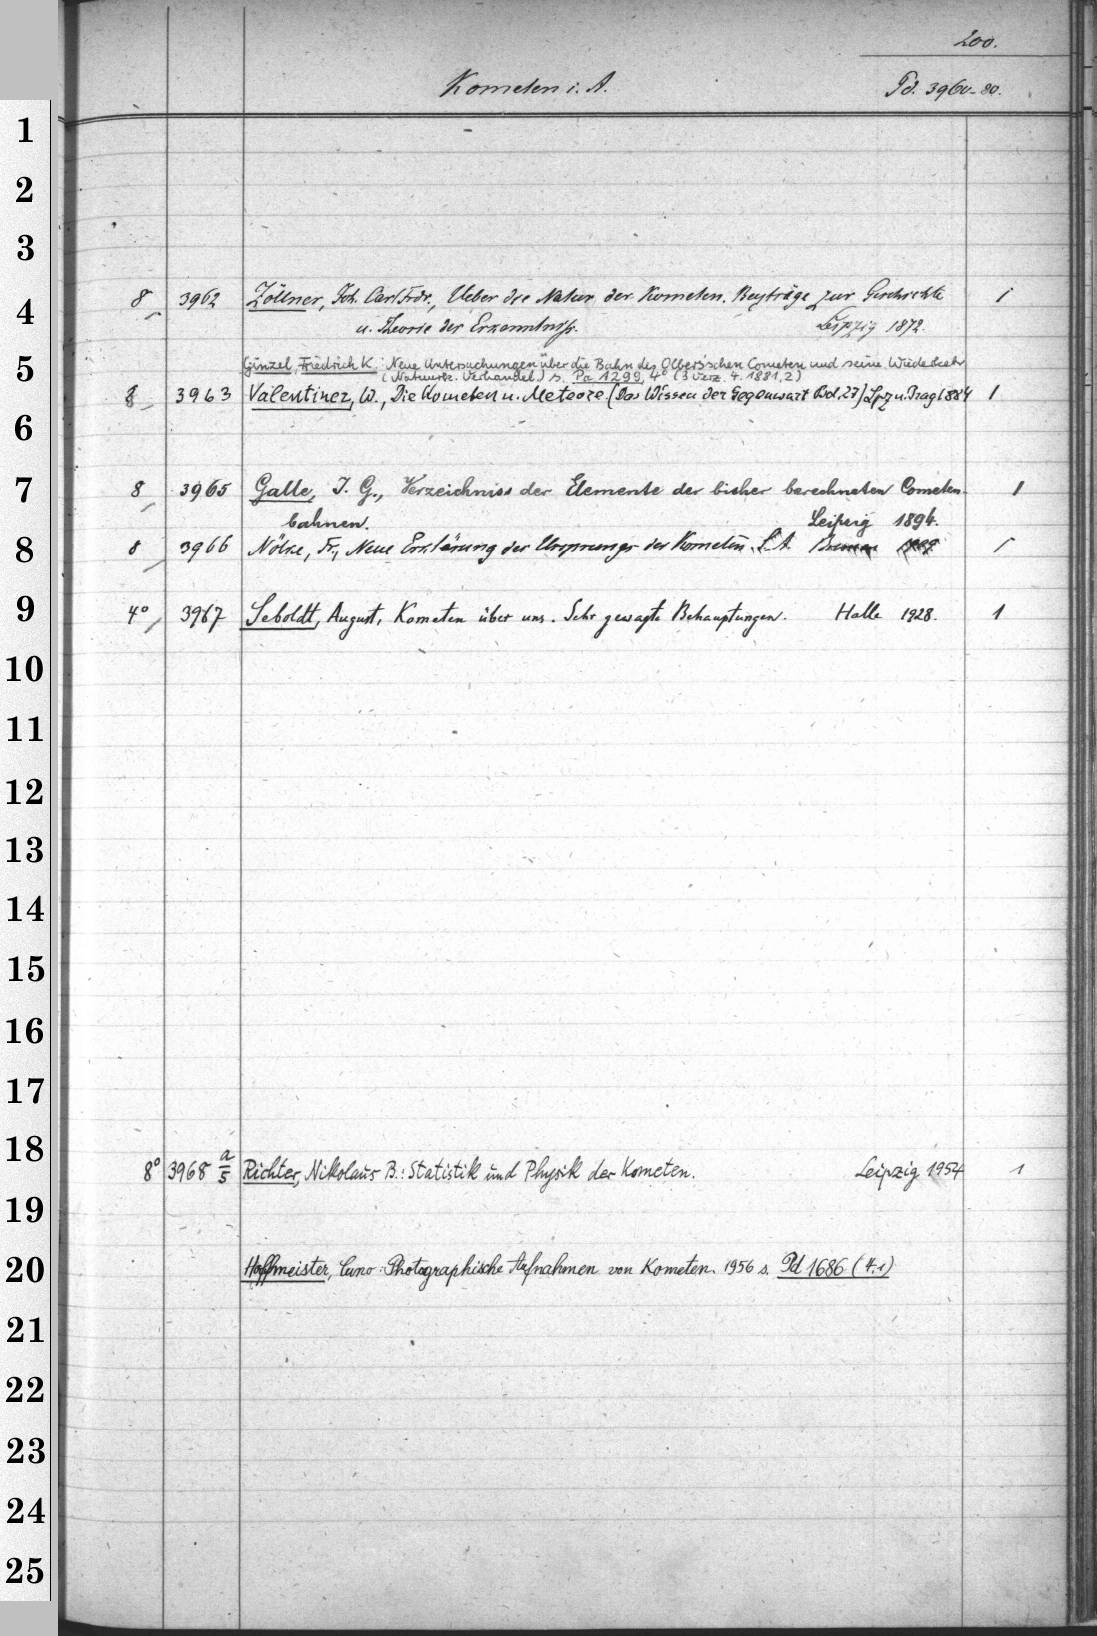 200.
Kometen i. A. Pd. 3960-80.
1
2
3
4
8 3962 Zöllner, Joh. Carl Frdr., Ueber die Natur der Kometen. Beyträge zur Geschichte 1
u. Theorie der Erkenntniß. Leipzig 1872.
5
Günzel, Friedrich K.: Neue Untersuchungen über die Bahn des Olbers'schen Cometen und seine Wiederkehr
(Naturwiz. Verhandel.) s. Pa 1299, 4° (3 Verz. 4. 1881,2)
8 3963 Valentiner, W., Die Kometen u. Meteore. (Das Wissen der Gegenwart Bd. 27) Lpz u. Prag 1884 1
6
7
8 3965 Galle, J. G., Verzeichniss der Elemente der bisher berechneten Cometen- 1
bahnen. Leipzig 1894.
8
8 3966 Nölke, Fr., Neue Erklärung des Ursprungs der Kometen. S. A. Bremen 1909 1
9
4° 3967 Seboldt, August, Kometen über uns. Sehr gewagte Behauptungen. Halle 1928. 1
10
11
12
13
14
15
16
17
18
8° 3968 a/5 Richter, Nikolaus B.: Statistik und Physik der Kometen. Leipzig 1954 1
19
20
Hoffmeister, Cuno: Photographische Aufnahmen von Kometen. 1956 s. Pd 1686 (4,1)
21
22
23
24
25